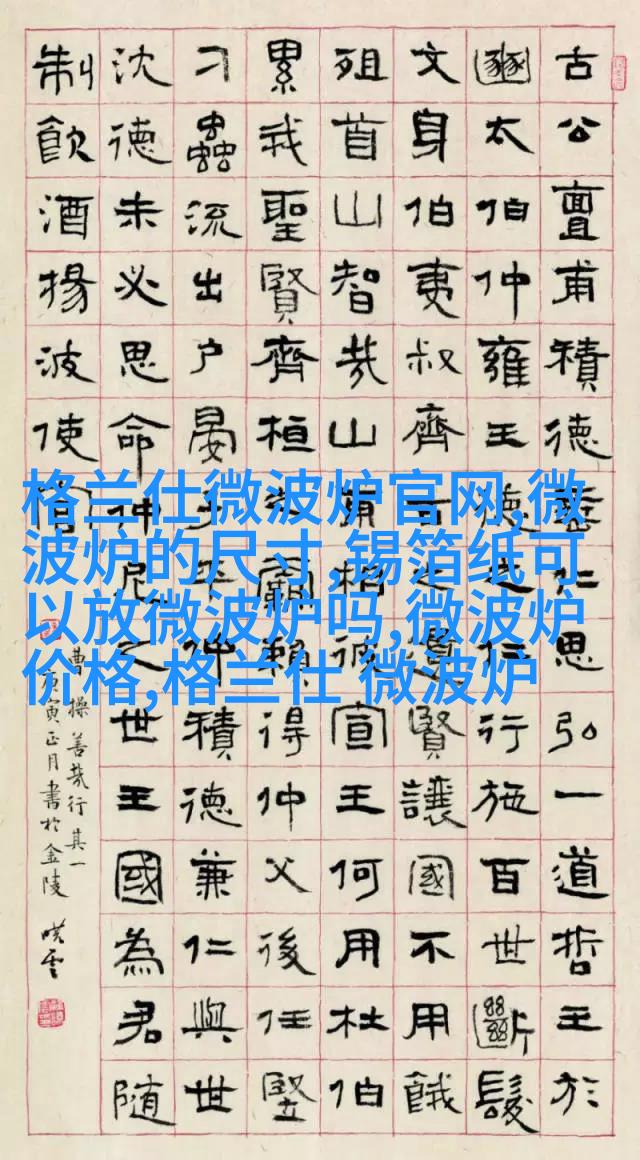 古公亶甫積德垂仁思弘一道哲王於
豳太伯仲雍王德之仁行施百世斷髮
文身伯夷叔齊古之遺賢讓國不用餓
殂首山智哉山甫相彼宣王何用杜伯
累我聖賢齊桓之霸賴得仲父後任豎
刁蟲流出户晏子平仲積德兼仁與世
沈德未必思命仲尼之世王國為君隨
制飲酒揚波使官
曹操善哉行其一
庚寅正月書於金陵
格兰仕微波炉官网,微
波炉的尺寸,锡箔纸可
以放微波炉吗,微波炉
价格,格兰仕 微波炉